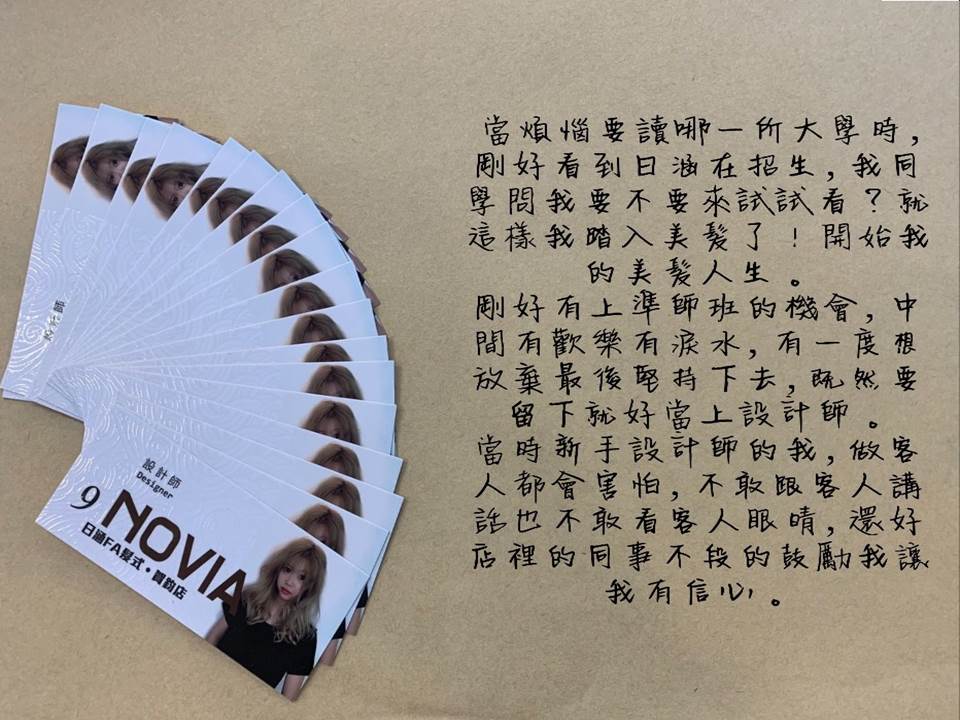 設計師
Designer
9 NOVIA
日涵FA髮式•貿鈞店
當煩惱要讀哪一所大學時,
剛好看到日涵在招生,我同
學問我要不要來試試看?就
這樣我踏入美髮了!開始我
的美髮人生。
剛好有上準師班的機會,中
間有歡樂有淚水,有一度想
放棄最後堅持下去,既然要
留下就好當上設計師。
當時新手設計師的我,做客
人都會害怕,不敢跟客人講
話也不敢看客人眼睛,還好
店裡的同事不段的鼓勵我讓
我有信心。